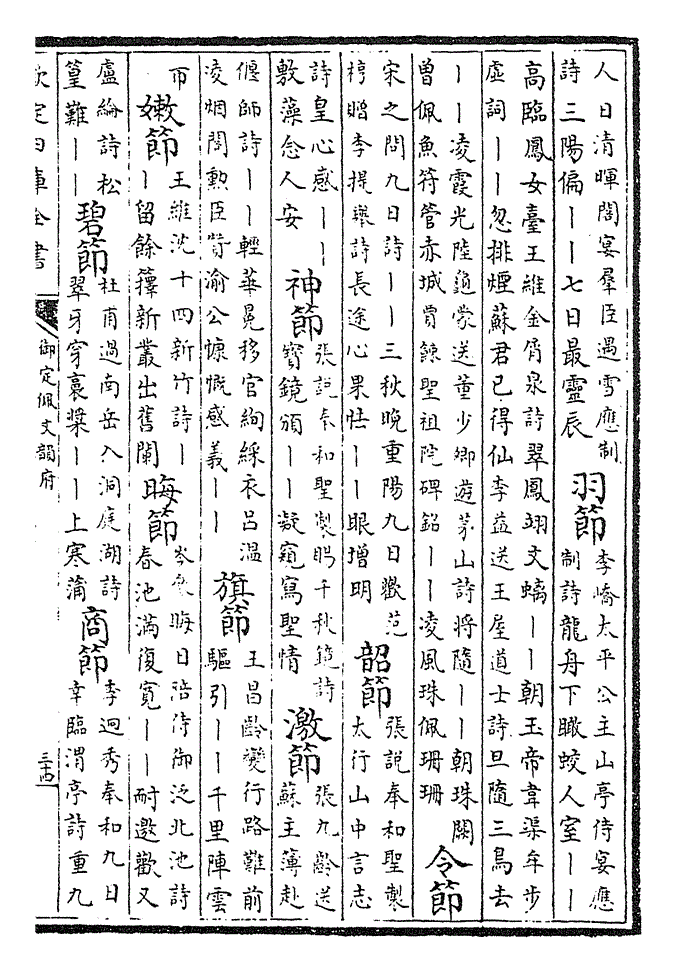 人日清暉閣宴羣臣遇雪應制
詩三陽偏丨丨七日最靈辰
羽節
李嶠太平公主山亭侍宴應
制詩龍舟下瞰蛟人室丨丨
高臨鳳女臺王維金屑泉詩翠鳳翊文螭丨丨朝玉帝韋渠牟步
虛詞丨丨忽排煙蘇君已得仙李益送王屋道士詩旦隨三鳥去
丨丨凌霞光陸龜蒙送董少卿遊茅山詩將隨丨丨朝珠闕
曾佩魚符管赤城賈餗聖祖院碑銘丨丨凌風珠佩珊珊
令節
宋之問九日詩丨丨三秋晚重陽九日歡范
梈贈李提舉詩長途心果怯丨丨眼增明
韶節
張說奉和聖製
太行山中言志
詩皇心感丨丨
敷藻念人安
神節
張說奉和聖製賜千秋鏡詩
寶鏡頒丨丨凝窺寫聖情
激節
張九齡送
蘇主簿赴
偃師詩丨丨輕華冕移官絢綵衣呂溫
凌烟閣勲臣贊渝公慷慨感義丨丨
旗節
王昌齡變行路難前
驅引丨丨千里陣雲
帀
嫩節
王維沈十四新竹詩丨
丨留餘籜新叢出舊闌
晦節
岑參晦日陪侍御泛北池詩
春池滿復寬丨丨耐邀歡又
盧綸詩松
篁難丨丨
碧節
杜甫過南岳入洞庭湖詩
翠牙穿裛槳丨丨上寒蒲
商節
李迥秀奉和九日
幸臨渭亭詩重九
欽定四庫全書
御定佩文韻府
三十四